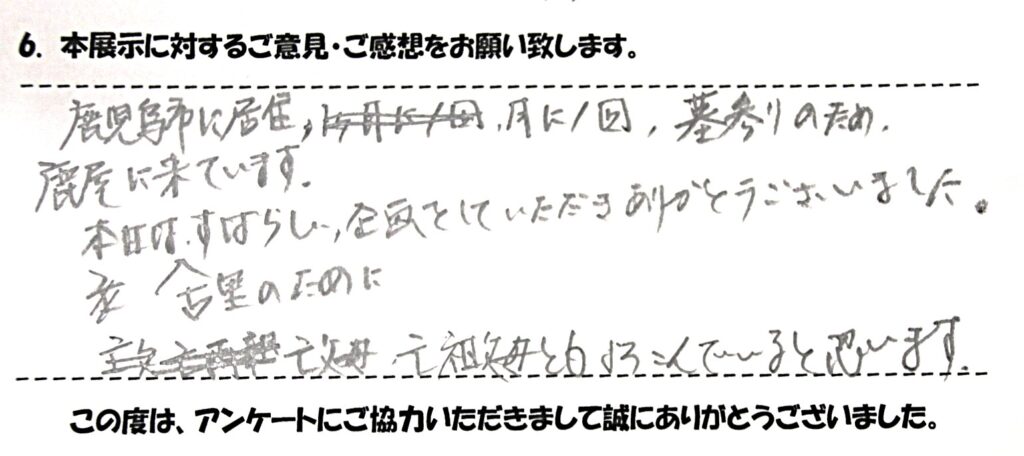 6. 本展示に対するご意見・ご感想をお願い致します。
鹿児島市に居住、月に1回、墓参りのため、
鹿屋に来ています。
本日は、すばらしい企画をしていただきありがとうございました。
古里のために
亡父母、亡祖父母ともよろこんでいると思います。
この度は、アンケートにご協力いただきまして誠にありがとうございました。